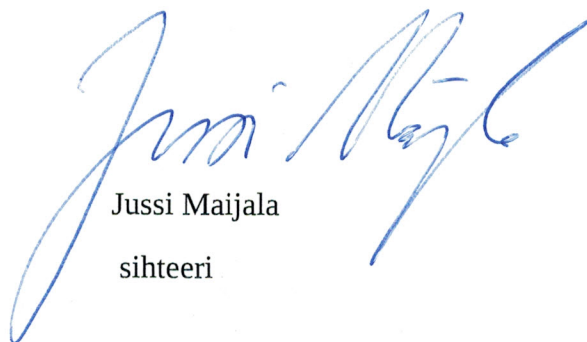 Jussi Maijala
Jussi Maijala
sihteeri